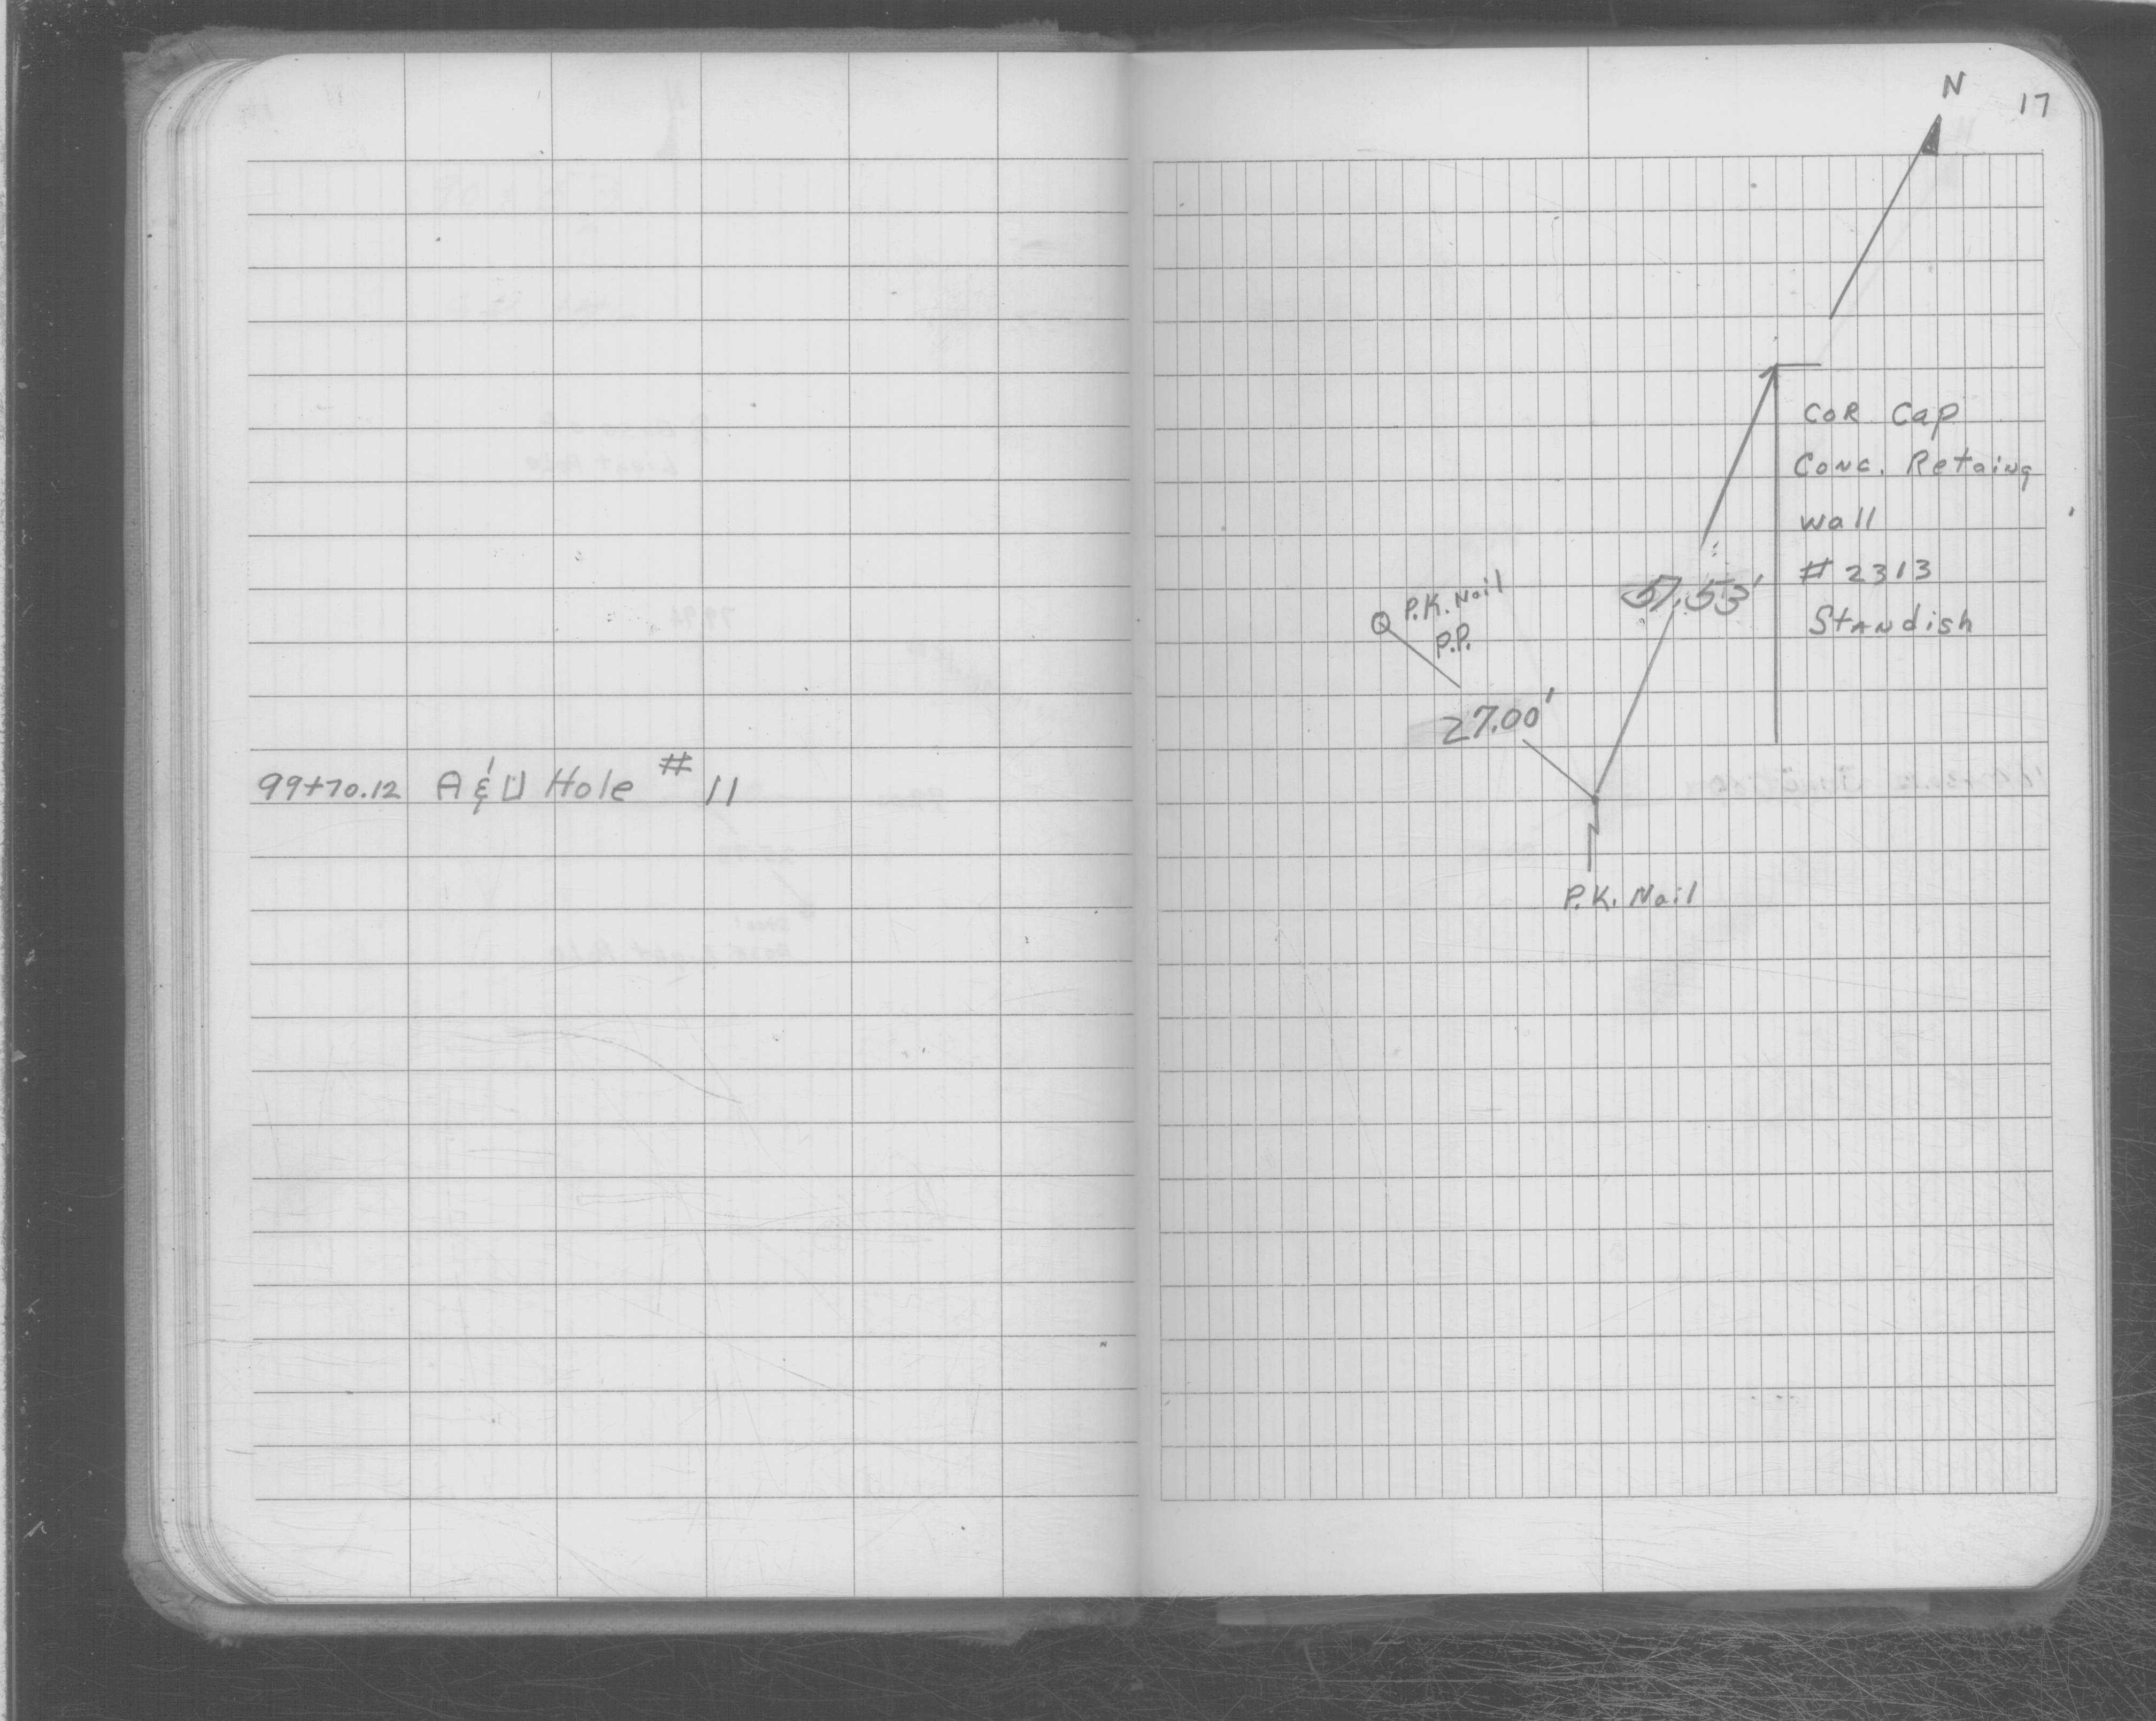 99+70.12 A & U Hole # 11
N
17
COR Cap
Conc. Retaing
wall
# 2313
Standish
P.K. Nail
P.P.
27.00'
P.K. Nail